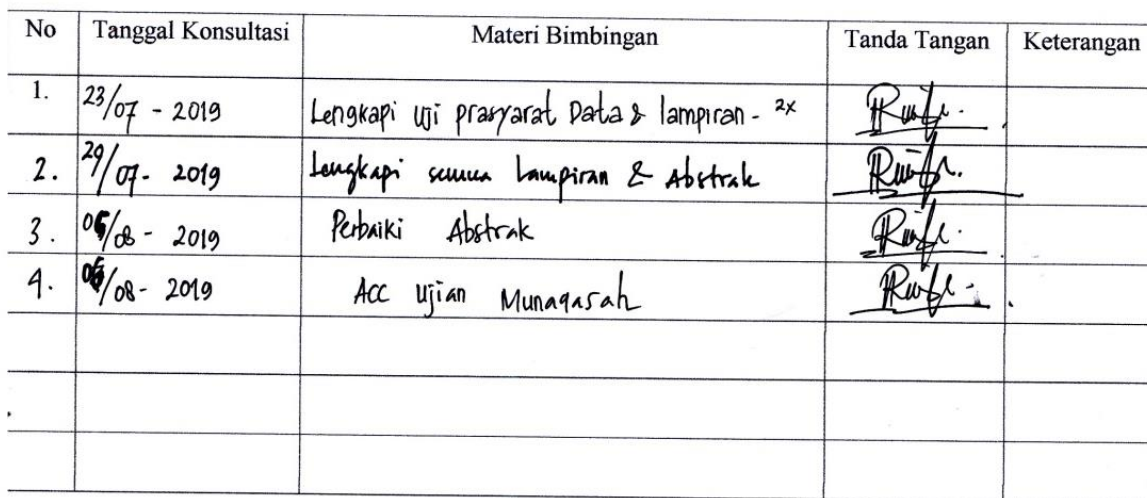 No Tanggal Konsultasi Materi Bimbingan Tanda Tangan Keterangan
1. 23/07 - 2019 Lengkapi uji prasyarat Data & lampiran - 2x
2. 29/07 - 2019 Lengkapi semua Lampiran & Abstrak
3. /08 - 2019 Perbaiki Abstrak
4. /08 - 2019 ACC Ujian Munaqasah